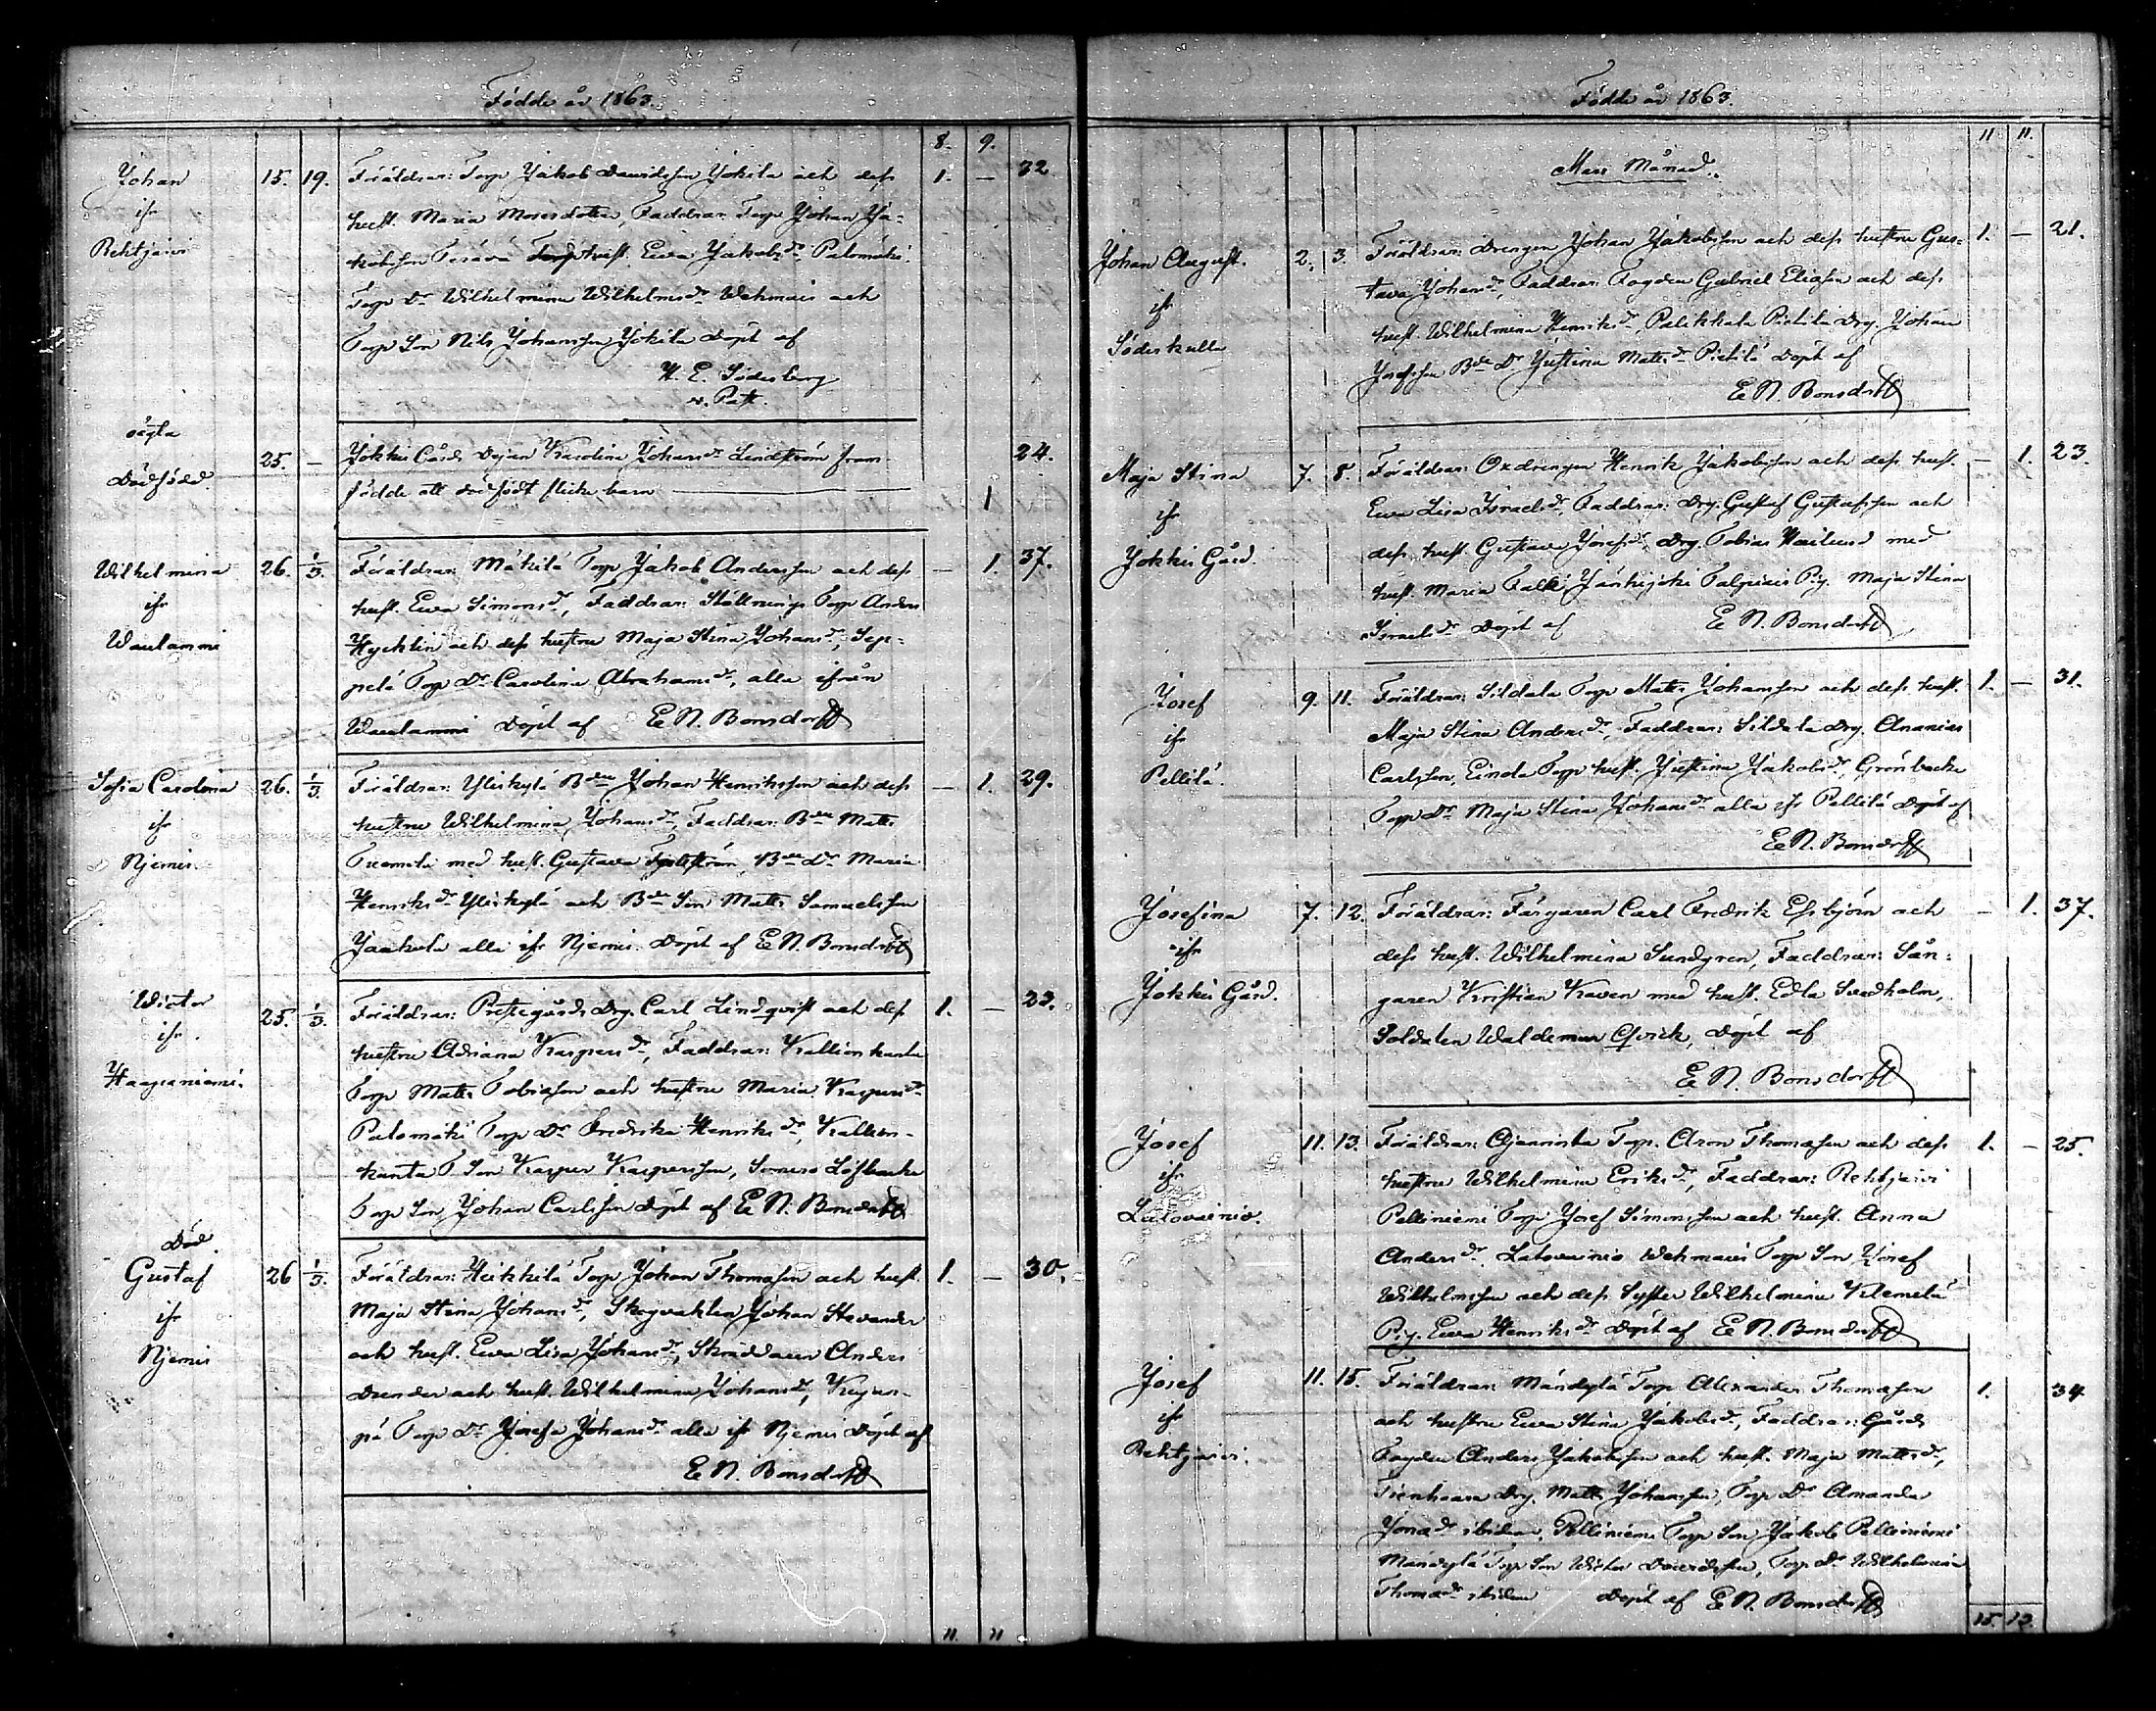 Födde år 1863.
8. 9.
Johan 15. 19. Föräldrar: Torp Jakob Davidsson Jokila och dess 1. — 32.
ifr hust. Maria Mosesdotter, Faddrar: Torp Johan Ja-
Rehtijärvi kobsson Perävä hust. Ewa Jakobsdr. Palomäki
Torp Dr Wilhelmina Wilhelmsdr Wehmais och
Torp Son Nils Johansson Jokila Döpt af
H. E. Söderberg
v. Past.
oägta
Dödfödd. 25. — Jokkis Gårds Dejan Karolina Johansdr Lindström fram- 24.
födde ett dödfödt flicke barn — 1
Wilhelmina 26. 1/3. Föräldrar: Mäkilä Torp Jakob Andersson och dess — 1. 37.
ifr hust. Ewa Simonsdr, Faddrar: Torp Anders
Waulammi Hycklin och dess hustru Maja Stina Johansdr, Sep-
pelä Torp Dr Carolina Abrahamsdr, alla ifrån
Waulammi Döpt af E N. Bonsdorff
Sofia Carolina 26. 1/3 Föräldrar: Ylikylä Bden Johan Henriksson och dess — 1. 29.
ifr hustru Wilhelmina Johansdr, Faddrar: Bden Matts
Njemis. med hust. Gustava Bde Dr Maria
Henriksdr Ylikylä och Bde Son Matts Samuelsson
Jaakola alla ifr Njemis. Döpt af E N. Bonsdorff
Wictor 25. 1/3. Föräldrar: Prestegårds Drg. Carl Lindqvist och dess 1. — 23.
ifr. hustru Adriana Kaspersdr, Faddrar: Kallionkanta
Haapaniemi. Torp Matts Tobiasson och hustru Maria Kaspersdr
Palomäki Torp Dr Fredrika Henriksdr, Kallion-
kanta T. Son Kasper Kaspersson, Somero Löfbacka
Torp Son Johan Carlsson Döpt af E N. Bonsdorff
Död.
Gustaf 26 1/3. Föräldrar: Heikkilä Torp Johan Thomasson och hust. 1. — 30.
ifr Maja Stina Johansdr, Skogvaktar Johan Stevander
Njemis och hust. Ewa Lisa Johansdr, Skräddaren Anders
och hust. Wilhelmina Johansdr,
Torp Dr Josefa Johansdr alla ifr Njemis Döpt af
E N. Bonsdorff
11. 11
Födde år 1863.
11 11.
Mars Månad.
Johan August. 2. 3. Föräldrar: Drengen Johan Jakobsson och dess hustru Gus- 1. — 21.
ifr tava Johansdr, Faddrar: Fogden Gabriel Eliasson och dess
Söderkulla hust. Wilhelmina Henriksdr Palikkala Pietilä Drg. Johan
Josefsson Bde Dr Justina Mattsdr Pietilä Döpt af
E N. Bonsdorff
Maja Stina 7. 8. Föräldrar: Oxdrengen Henrik Jakobsson och dess hust. — 1. 23.
ifr Ewa Lisa Israelsdr, Faddrar: Drg. Gustaf Gustafsson och
Jokkis Gård. dess hust. Gustava Josefsdr, Drg. Tobias med
hust. Maria Jänhijoki Pig. Maja Stina
Israelsdr Döpt af E N. Bonsdorff
Josef 9. 11. Föräldrar: Sildala Torp Matts Johansson och dess hust. 1. — 31.
ifr Maja Stina Andersdr, Faddrar: Sildala Drg. Ananias
Pellilä. Carlsson, Einola Torp hust. Justina Jakobsdr, Grönbacka
Torp Dr Maja Stina Johansdr alla ifr Pellilä Döpt af
E N. Bonsdorff
Josefina 7. 12. Föräldrar: Färgaren Carl Fredrik Essbjörn och — 1. 37.
ifr dess hust. Wilhelmina Sundgren, Faddrar: Sån-
Jokkis Gård. garen Kristian Kraven med hust. Edla Svedholm,
Soldaten Waldemar Qvick, Döpt af
E N. Bonsdorff
Josef 11. 13. Föräldrar: Ojanniska Torp. Aron Thomasson och dess 1. — 25.
ifr hustru Wilhelmina Eriksdr, Faddrar: Rehtijärvi
Latovainio. Pelliniemi Torp Josef Simonsson och hust. Anna
Andersdr Latovainio Wehmais Torp Son Josef
Wilhelmsson och dess Syster Wilhelmina
Pig. Ewa Henriksdr Döpt af E N. Bonsdorff
Josef 11. 15. Föräldrar: Mändylä Torp Alexander Thomasson 1. 34.
ifr och hustru Ewa Stina Jakobsdr, Faddrar: Gårds
Rehtijärvi. Fogden Anders Jakobsson och hust. Maja Mattsdr,
Tienhaara Drg. Matts Johansson, Torp Dr Amanda
Jonasdr ibidem, Pelliniemi Torp Son Jakob Pelliniemi
Mändylä Torp Son Wictor Davidsson, Torp Dr Wilhelmina
Thomasdr ibidem Döpt af E N. Bonsdorff
15. 13.